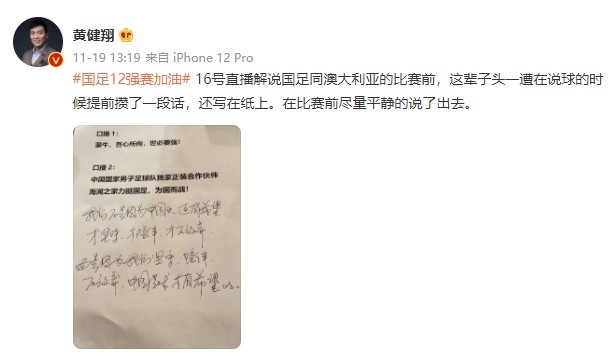 黄健翔
11-19 13:19 来自 iPhone 12 Pro
#国足12强赛加油# 16号直播解说国足同澳大利亚的比赛前，这辈子头一遭在说球的时
候提前攒了一段话，还写在纸上。在比赛前尽量平静的说了出去。
口播 1：
蒙牛，吾心所向，世必要强！
口播 2：
中国国家男子足球队独家正装合作伙伴
海澜之家力挺国足，为国而战！
我们不是因为中国队还有希望，
才坚守、才陪伴、才不放弃
而是因为我们坚守、陪伴
不放弃，中国足球才有希望